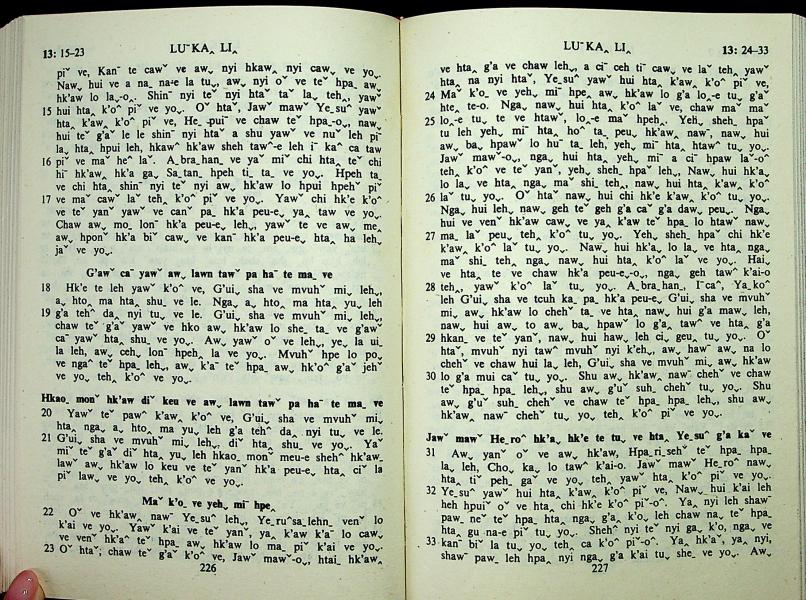 13: 15–23
LUˉ KA‸ LI‸
piˇ ve, Kanˉ te cawˇ ve aw˯ nyi hkaw˰ nyi caw˯ ve yo˯.
Naw˯ hui ve a na_ na-e la tu˯, aw˯ nyi oˇ ve teˇ hpa_ aw˯
hk'aw lo la˯-o˰. Shinˉ nyi teˇ nyi htaˇ taˇ la˰ teh˰, yawˇ
15 hui hta˰ k'oˆ piˇ ve yo˯. Oˇ htaˇ, Jawˇ mawˇ Ye_suˆ yawˇ
hta˰ k'aw˰ k'oˆ piˇ ve, He_-puiˉ ve chaw teˇ hpa_-o˯, naw˯
hui teˇ g'aˇ le le shinˉ nyi htaˇ a shu yawˇ ve nuˇ leh piˇ
la˯ hta˰ hpui leh, hkawˇ hk'aw sheh tawˆ-e leh iˉ kaˆ ca taw
16 piˇ ve maˇ heˆ laˇ. A_bra_han_ ve yaˇ miˇ chi hta˰ teˇ chi
hiˉ hk'aw˰ hk'a ga˯ Sa_tan_ hpeh ti_ ta_ ve yo˯. Hpeh taˇ
ve chi hta˰ shinˉ nyi teˇ nyi aw˯ hk'aw lo hpui hpeh piˇ
17 ve maˇ caw˯ laˇ teh˰ k'oˆ piˇ ve yo˯. Yawˇ chi hk'e k'oˆ
ve teˇ yanˇ yawˇ ve canˇ pa_ hk'a peu-e˯ ya˰ taw ve yo˯.
Chaw aw˯ mo_ lonˉ hk'a peu-e˯ leh˯, yawˇ te ve aw˯ me˰
aw˯ hponˇ hk'a biˇ caw˯ ve kanˉ hk'a peu-e˯ hta˰ ha leh˯
jaˇ ve yo˯.
G'awˇ caˉ yawˇ aw˯ lawn tawˇ pa haˉ te ma_ ve
18 Hk'e te leh yawˇ k'oˆ ve, G'ui˯ sha ve mvuhˇ mi˯ leh˯,
a˰ hto˰ ma hta˰ shu_ ve le. Nga_ a˰ hto˰ ma hta˰ yu˰ leh
19 g'a tehˆ da˰ nyi tu˯ ve le. G'ui˯ sha ve mvuhˇ mi˯ leh˯,
chaw teˇ g'aˇ yawˇ ve hko aw˯ hk'aw lo she_ ta_ ve g'awˇ
caˉ yawˇ hta˰ shu_ ve yo˯. Aw˯ yawˇ oˇ ve leh˯, ye˯ la ui_
la leh, aw˯ ceh˰ lonˉ hpeh˰ la ve yo˯. Mvuhˇ hpe lo po˯
ve ngaˆ teˇ hpa_ leh˯ aw˯ k'aˉ teˇ hpa_ aw˯ hk'oˆ g'aˇ jehˇ
ve yo˯ teh˰ k'oˆ ve yo˯.
Hkao_ monˇ hk'aw diˇ keu ve aw˯ lawn tawˇ pa haˉ te ma_ ve
20 Yawˇ teˇ pawˆ k'aw˰ k'oˆ ve, G'ui˯ sha ve mvuhˇ mi˯
hta˰ nga_ a˰ hto˰ ma yu˰ leh g'a tehˆ da˰ nyi tu˯ ve le.
21 G'ui˯ sha ve mvuhˇ mi˯ leh˯, diˇ hta˰ shu_ ve yo˯. Yaˇ
miˇ teˇ g'aˇ diˇ hta˰ yu˰ leh hkao_ monˇ meu-e shehˆ hk'aw˰
lawˇ aw˯ hk'aw lo keu ve teˇ yanˇ hk'a peu-e˯ hta˰ ciˇ la
piˇ law˯ ve yo˯ teh˰ k'oˆ ve yo˯.
Maˇ k'o˯ ve yeh˯ miˉ hpe˰
22 Oˇ ve hk'aw˰ nawˉ Ye_suˆ leh˯, Ye_ruˆsa_lehn_ venˇ lo
k'ai ve yo˯. Yawˇ k'ai ve teˇ yanˇ, ya˰ k'aw kˉa lo caw˯
ve venˇ hk'aˆ teˇ hpa_ aw˯ hk'aw lo ma_ piˇ k'ai ve yo˯.
23 Oˇ htaˇ, chaw teˇ g'aˇ k'oˆ ve, Jawˇ mawˇ-o˯, htai_ hk'aw˰
226
LUˉ KA‸ LI‸
13: 24–33
ve hta˰ g'a ve chaw leh˯, a ciˉ ceh tiˉ caw˯ ve laˇ teh˰ yawˇ
hta˰ na nyi htaˇ, Ye_suˆ yawˇ hui hta˰ k'aw˰ k'oˆ piˇ ve,
24 Maˇ k'o˯ ve yeh˯ miˉ hpe˰ aw˯ hk'aw lo g'a lo˰-e tu˯ g'aˇ
hte_ te-o. Nga_ naw˯ hui hta˰ k'oˆ laˇ ve, chaw maˇ maˇ
25 lo˰-e tu˯ te ve htawˇ, lo˰-e maˇ hpeh˰. Yeh˯ sheh_ hpaˇ
tu leh yeh˯ miˉ hta˰ hoˆ ta_ peu˯ hk'aw˰ nawˉ, naw˯ hui
aw˯ ba˯ hpawˇ lo huˉ ta_ leh, yeh˯ miˉ hta˰ htawˇ tu˯ yo˯.
Jawˇ mawˇ-o˯, nga˯ hui hta˰ yeh˯ miˉ a ciˉ hpaw laˇ-oˆ
teh˰ k'oˆ ve teˇ yanˇ, yeh˯ sheh_ hpaˇ leh˯, Naw˯ hui hk'a˯
lo la˯ ve hta˰ nga_ maˇ shi_ teh˰, naw˯ hui hta˰ k'aw˰ k'oˆ
26 laˇ tu˯ yo˯. Oˇ htaˇ naw˯ hui chi hk'e k'aw˰ k'oˆ tu˯ yo˯.
Nga˯ hui leh˯ naw˯ geh˰ teˇ geh˰ g'a caˇ g'a daw˰ peu˯. Nga˯
hui ve venˇ hk'aw caw˯ ve ya˰ k'aw teˇ hpa_ lo htawˇ naw˯
27 ma_ laˇ peu˯ teh˰ k'oˆ tu˯ yo˯. Yeh˯ sheh_ hpaˇ chi hk'e
k'aw˰ k'oˆ laˇ tu˯ yo˯. Naw˯ hui hk'a˯ lo la˯ ve hta˰ nga_
maˇ shi_ teh˰ naw˯ hui hta˰ k'oˆ laˇ tu˯ yo˯. Hai˯
ve hta˰ te ve chaw hk'a peu-e˯-o˯, nga˯ geh˰ tawˆ k'ai-o
28 teh˰, yawˇ k'oˆ laˇ tu˯ yo˯. A_bra_han_, I˘caˆ, Ya_koˆ
leh G'ui˯ sha ve tcuh ka˰ pa_ hk'a peu-e˯ G'ui˯ sha ve mvuhˇ
mi˯ aw˯ hk'aw lo chehˇ ta_ ve hta˰ naw˯ hui g'a maw˯ leh,
naw˯ hui aw˯ to aw˯ ba˯ hpawˇ lo g'a˰ tawˆ ve hta˰ g'a
29 hkan_ ve teˇ yanˇ, naw˯ hui haw˯ leh ci˰ geu˰ tu˯ yo˯. Oˇ
htaˇ, mvuhˇ nyi tawˆ mvuhˇ nyi k'eh˯, aw˯ hawˉ aw˯ na lo
chehˇ ve chaw hui la˯ leh, G'ui˯ sha ve mvuhˇ mi˯ aw˯ hk'aw
30 lo g'a mui caˇ tu˯ yo˯. Shu aw˯ hk'aw˰ nawˉ chehˇ ve chaw
teˇ hpa_ hpa_ leh˯, shu aw˯ g'uˇ suh_ chehˇ tu˯ yo˯. Shu
aw˯ g'uˇ suh_ chehˇ ve chaw teˇ hpa_ hpa_ leh˯, shu aw˯
hk'aw˰ nawˉ chehˇ tu˯ yo˯ teh˰ k'oˆ piˇ ve yo˯.
Jawˇ mawˇ He_roˆ hk'a˰ hk'e te tu˯ ve hta˰ Ye_suˆ g'a kaˇ ve
31 Aw˯ yanˇ oˇ ve aw˯ hk'aw, Hpa_ri_sehˇ teˇ hpa_ hpa_
la˯ leh, Cho˰ ka˯ lo tawˆ k'ai-o. Jawˇ mawˇ He_roˆ naw˯
hta˰ tiˇ peh_ gaˇ ve yo˯ teh˰ yawˇ hta˰ k'oˆ piˇ ve yo˯.
32 Ye_suˆ yawˇ hui hta˰ k'aw˰ k'oˆ piˇ ve, Naw˯ hui k'ai leh
heh hpuiˇ oˇ ve hta˰ chi hk'e k'oˆ piˇ-oˆ. Ya˰ nyi leh shawˉ
paw˯ neˇ teˇ hpa_ hta˰ nga_ g'a˰ k'o˰ leh chaw na_ teˇ hpa_
hta˰ gu na-e piˇ tu˯ yo˯. Shehˆ nyi teˇ nyi ga˯ k'o˰ nga_ ve
33 kanˉ biˇ la tu˯ yo˯ teh˰ ca k'oˆ piˇ-oˆ. Ya˰ hk'aˇ, ya˰ nyi,
shawˉ paw˯ leh hpa˰ nyi nga_ g'a k'ai tu˯ she_ ve yo˯. Aw˯
227